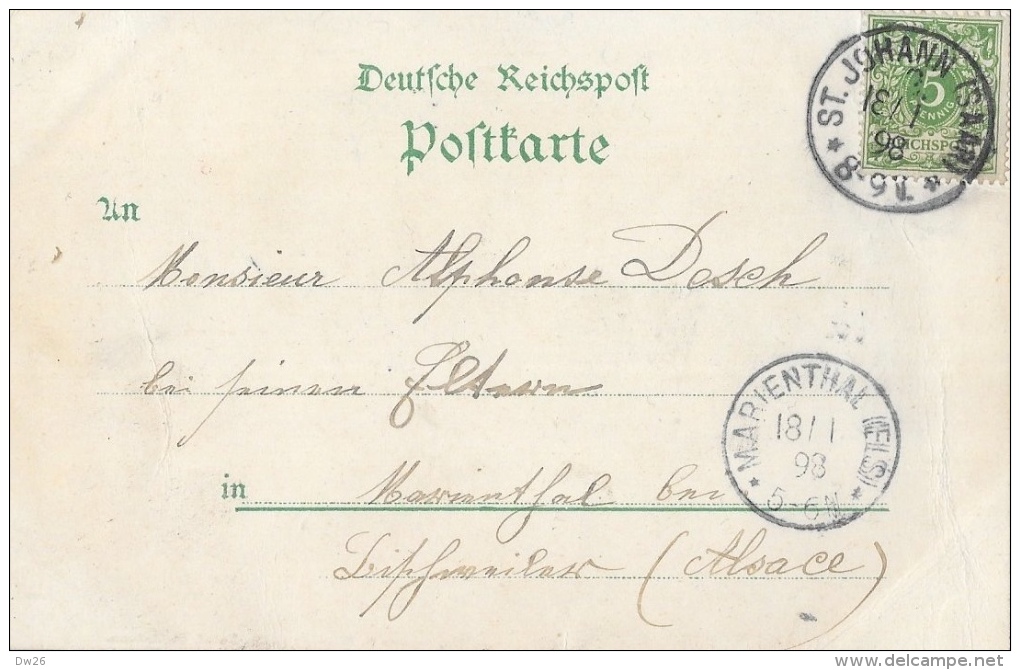 Deutsche Reichspost
Postkarte
ST. JOHANN (SAAR)
18/1
98
* 8-9 V. *
5
PFENNIG
REICHSPOST
An
Monsieur Alphonse Dosch
bei seinen Eltern
MARIENTHAL (ELS)
18/1
98
* 5-6 N. *
in Marienthal bei
Bischweiler (Alsace)
Dw26
www.delcampe.net